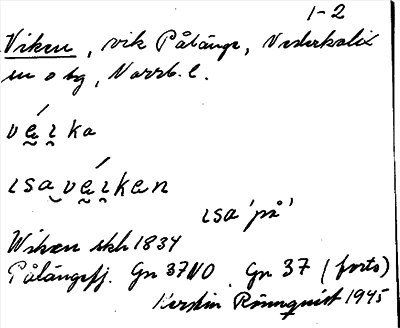 1-2
Viken, vik Pålänge, Nederkalix
sn o tg, Norrb. l.
ve̮i̯ka
ɩsa vé̮ɩ̯kæn
ɩsa 'på'
Wiken skh 1834
Pålängefj. Gn 37NO. Gn 37 (forts)
Kerstin Rönnquist 1945